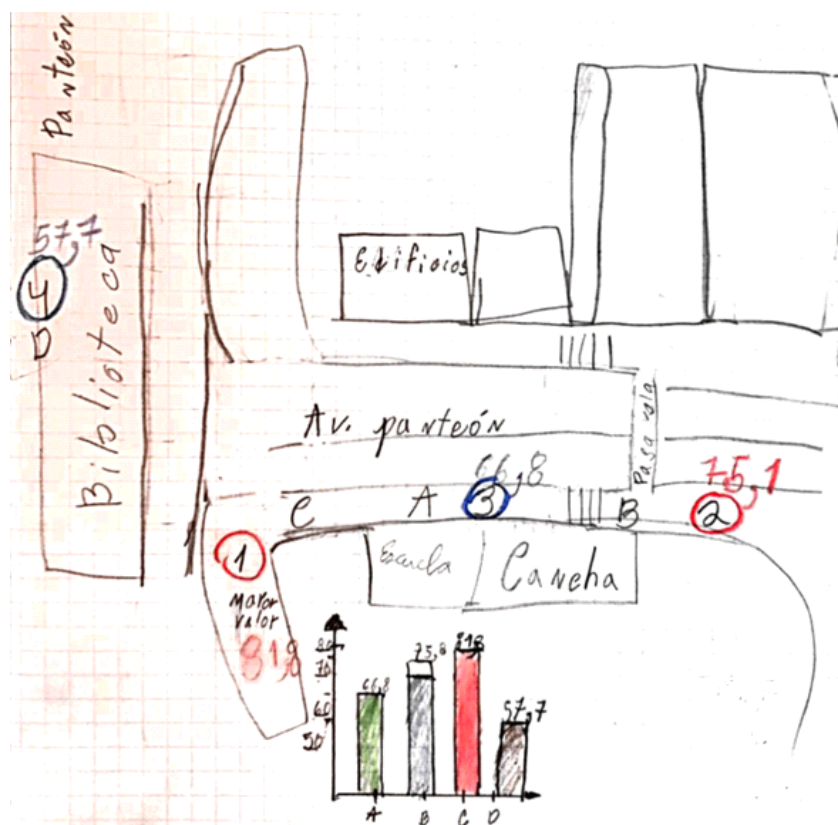 Panteón
57,7
4
D
Biblioteca
Edificios
Av. panteón
Pasarela
66,8
75,1
C
A
3
B
2
1
Escuela
Cancha
Mayor
valor
81,8
80
70
60
50
66,8
75,8
81,8
57,7
A
B
C
D